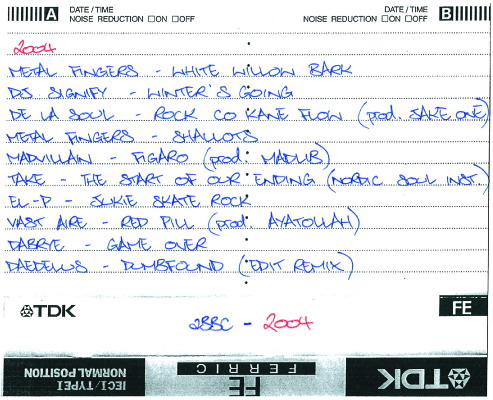 A DATE / TIME
NOISE REDUCTION □ON □OFF
DATE / TIME B
NOISE REDUCTION □ON □OFF
2004
METAL FINGERS - WHITE WILLOW BARK
DJ SIGNIFY - WINTER'S GOING
DE LA SOUL - ROCK CO KANE FLOW (prod. JAKE ONE)
METAL FINGERS - SHALLOTS
MADVILLAIN - FIGARO (prod. MADLIB)
TAKE - THE START OF OUR ENDING (NORDIC SOUL INST.)
EL-P - JUKIE SKATE ROCK
VAST AIRE - RED PILL (prod. AYATOLLAH)
DABRYE - GAME OVER
DAEDELUS - DUMBFOUND (EDIT REMIX)
TDK
FE
2BBC - 2004
IECI/TYPEI
NORMAL POSITION
FE
FERRIC
TDK